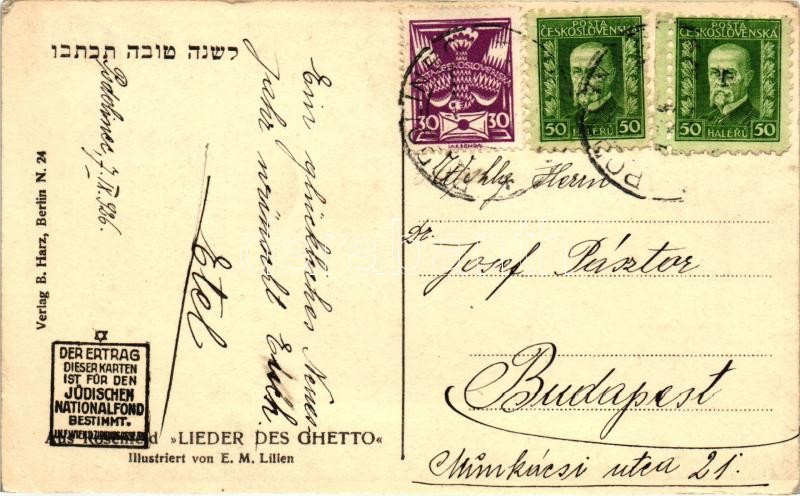 לשנה טובה תכתבו
7. IX. 926.
Ein glückliches Neues
Jahr wünscht Euch
Etel
Verlag B. Harz, Berlin N. 24
DER ERTRAG
DIESER KARTEN
IST FÜR DEN
JÜDISCHEN
NATIONALFOND
BESTIMMT.
Aus Rosenfeld »LIEDER DES GHETTO«
Illustriert von E. M. Lilien
ČESKOSLOVENSKÁ
30 30
POSTA
ČESKOSLOVENSKÁ
50 HALERŮ 50
POSTA
ČESKOSLOVENSKÁ
50 HALERŮ 50
Herrn
Dr. Josef Pásztor
Budapest
Munkácsi utca 21.